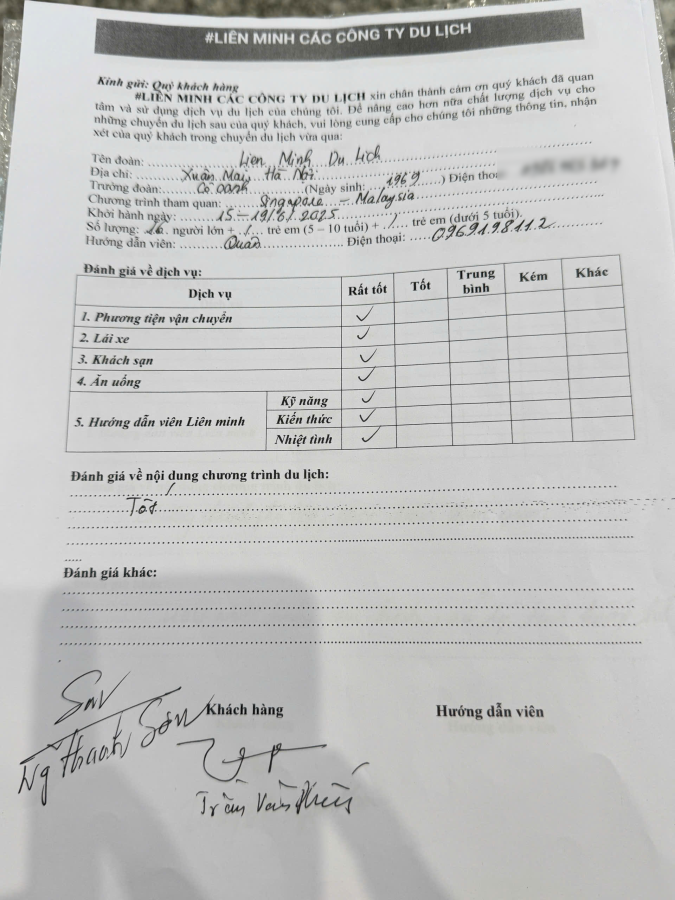 #LIÊN MINH CÁC CÔNG TY DU LỊCH
Kính gửi: Quý khách hàng
#LIÊN MINH CÁC CÔNG TY DU LỊCH xin chân thành cảm ơn quý khách đã quan
tâm và sử dụng dịch vụ du lịch của chúng tôi. Để nâng cao hơn nữa chất lượng dịch vụ cho
những chuyến du lịch sau của quý khách, vui lòng cung cấp cho chúng tôi những thông tin, nhận
xét của quý khách trong chuyến du lịch vừa qua:
Tên đoàn: Liên Minh Du Lịch
Địa chỉ: Xuân Mai, Hà Nội
Trưởng đoàn: Cô oanh (Ngày sinh: 1969) Điện thoại
Chương trình tham quan: Singapore - Malaysia
Khởi hành ngày: 15-19/6/2025
Số lượng: 16 người lớn + / trẻ em (5 – 10 tuổi) + / trẻ em (dưới 5 tuổi).
Hướng dẫn viên: Quân Điện thoại: 0969198112
Đánh giá về dịch vụ:
Dịch vụ Rất tốt Tốt Trung bình Kém Khác
1. Phương tiện vận chuyển ✓
2. Lái xe ✓
3. Khách sạn ✓
4. Ăn uống ✓
5. Hướng dẫn viên Liên minh Kỹ năng ✓
Kiến thức ✓
Nhiệt tình ✓
Đánh giá về nội dung chương trình du lịch:
Tốt
Đánh giá khác:
Khách hàng Hướng dẫn viên
Sơn
Ng Thanh Sơn
Trần Văn